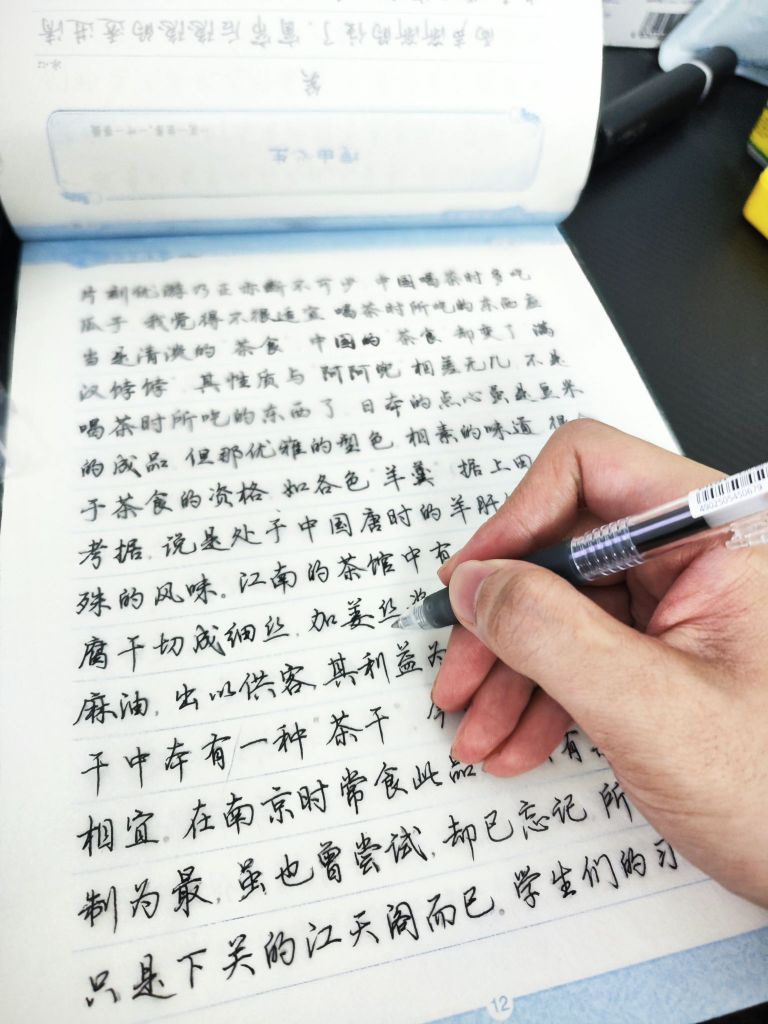 片刻优游乃正亦断不可少 中国喝茶时多吃
瓜子 我觉得不很适宜 喝茶时所吃的东西应
当是清淡的 茶食 中国的 茶食 却变了 满
汉饽饽 其性质与 阿阿兜 相差无几 不是
喝茶时所吃的东西了 日本的点心虽是豆米
的成品 但那优雅的型色 相素的味道 很
于茶食的资格 如各色 羊羹 据上田
考据, 说是处于中国唐时的羊肝
殊的风味。江南的茶馆中有
腐干切成细丝, 加姜丝酱
麻油, 出以供客, 其利益为
干中本有一种 茶干 今
相宜。在南京时常食此品 有
制为最, 虽也曾尝试, 却已忘记, 所
只是下关的江天阁而已。学生们的习
12
4902505450679